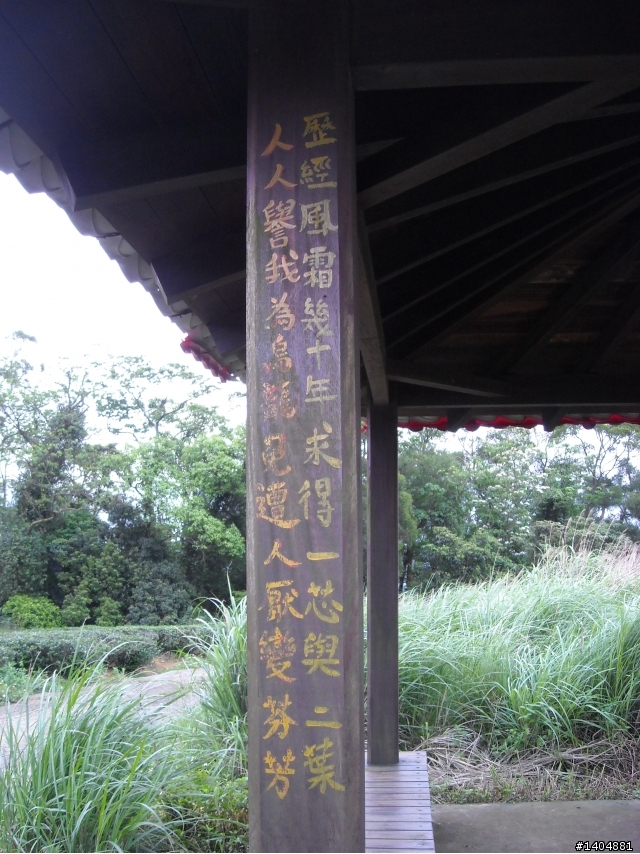 歷經風霜幾十年求得一芯與二葉
人人譽我為烏龍免遭人厭變芬芳
#1404881